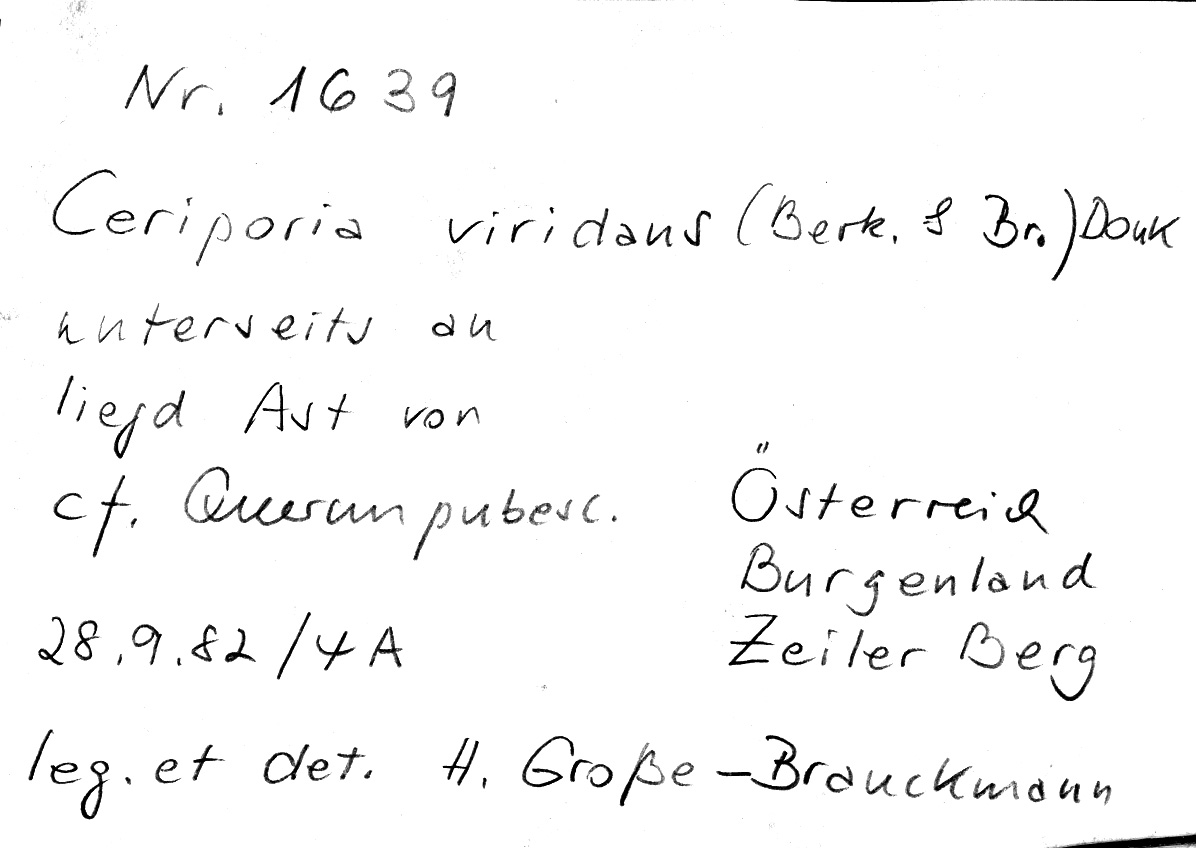 Nr. 1639
Ceriporia viridans (Berk. & Br.) Donk
unterseits an
liegd Ast von
cf. Quercus pubesc.
Österreich
Burgenland
28.9.82/4A
Zeiler Berg
leg. et det. H. Große-Brauckmann